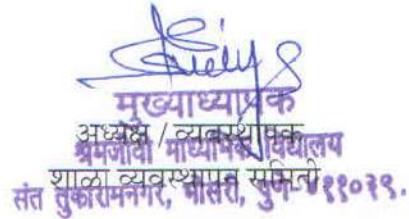 मुख्याध्यापक
अध्यक्ष / व्यवस्थापक
श्रमजीवी माध्यमिक विद्यालय
शाळा व्यवस्थापन समिती
संत तुकारामनगर, भोसरी, पुणे- ४११०३९.